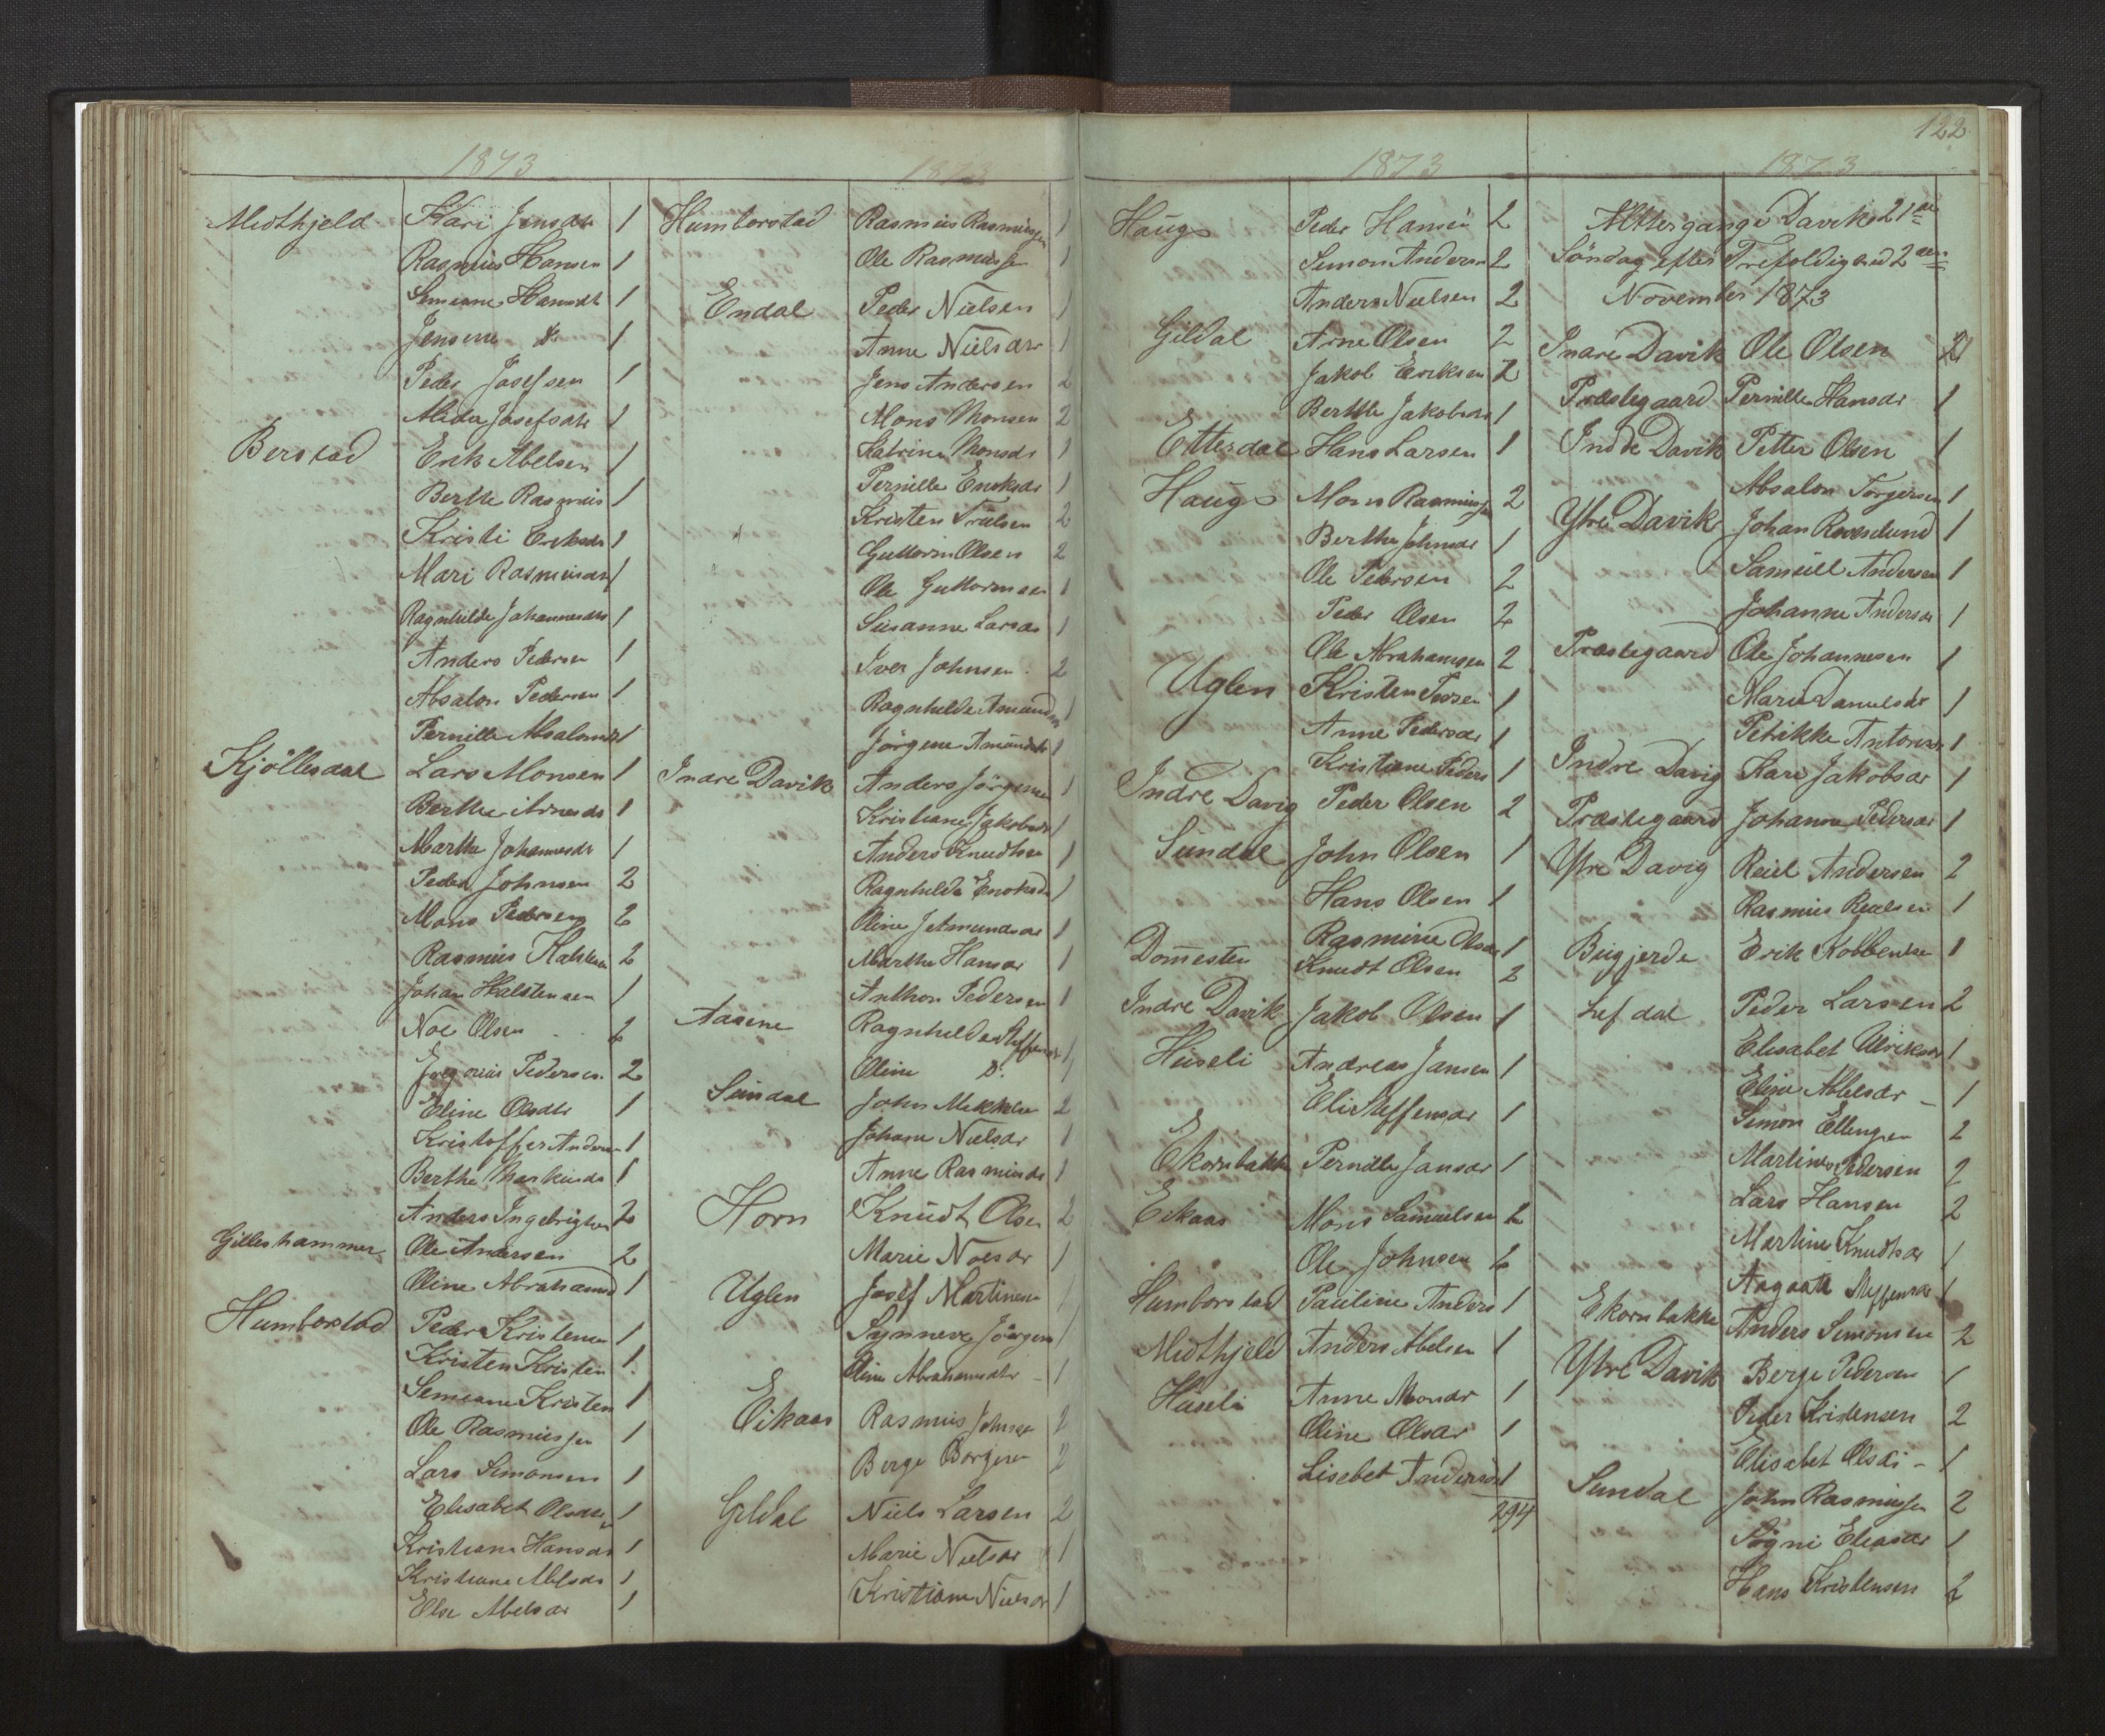 1873
Midthjeld Kari Jensdtr 1
Rasmus Hansen 1
Simeane Hansdtr 1
Jensine Do 1
Peder Josefsen 1
Josefsdtr 1
Berstad Erik Abelsen 1
Berthe Rasmus 1
Kristi Eriksdr 1
Mari Rasmusdtr 1
Ragnhilde Johannesdtr 1
Anders Pedersen 1
Absalon Pedersen 1
Pernille Absalonsdr 1
Kjöllesdal Lars Monsen 1
Berthe Arnesdr 1
Marthe Johannesdr 1
Peder Johnsen 2
Mons Pedersen 2
Rasmus Halsten 2
Johan Halstensen 1
Noe Olsen 2
Gregorius Pedersen 2
Eline Olsdtr 1
Kristoffer Andersen 1
Berthe Markusdr 1
Anders Ingebrigtsen 2
Gilleshammer Ole Andersen 2
Oline Abrahamsd 1
Humborstad Peder Kristensen 1
Kristen Kristen 1
Simeane Kristen 1
Ole Rasmussen 1
Lars Simonsen 1
Elisabet Olsdtr 1
Kristiane Hansdr 1
Kristiane Abelsdr 1
Else Abelsdr 1
1873
Humborstad Rasmus Rasmussen 1
Ole Rasmussen 1
Endal Peder Nielsen 1
Anne Nielsdtr 1
Jens Andersen 2
Mons Monsen 2
Katrine Monsdr 1
Pernille Enoksdr 1
Kristen Trulsen 2
Guttorm Olsen 2
Ole Guttormsen 1
Susanne Larsdr 1
Iver Johnsen 2
Ragnhilde Amundsdr 1
Jörgene Amundsdr 1
Indre Davik Anders Jörgensen 1
Kristiane Jakobsdr 1
Anders Knudtsen 1
Ragnhilde Enoksdr 1
Oline Jetmundsdr 1
Marthe Hansdr 1
Anthon Pedersen 1
Aasene Ragnhilde Steffensdr 1
Oline Do 1
Sundal John Mekkelsen 2
Johane Nielsdr 1
Anne Rasmusdr 1
Horn Knudt Olsen 2
Marie Noesdr 1
Uglen Josef Martinesen 1
Synneve Jörgens 1
Oline Abrahamsdtr 1
Eikaas Rasmus Johnsen 2
Berge Börgesen 2
Gildal Niels Larsen 2
Marie Nielsdr 1
Kristiane Nielsdr 1
122
1873
Haug Peder Hansen 2
Simon Andersen 2
Anders Nielsen 2
Gildal Arne Olsen 2
Jakob Eriksen 2
Berthe Jakobsdr 1
Ettesdal Hans Larsen 1
Haug Mons Rasmussen 2
Berthe Johnsdr 1
Ole Pedersen 2
Peder Olsen 2
Ole Abrahamsen 2
Uglen Kristen 1
Anne Pedersdr 1
Kristiane Peders 1
Indre Davig Peder Olsen 2
Sundal John Olsen 1
Hans Olsen 1
Rasmine Olsdr 1
Domesten Knudt Olsen 2
Indre Davik Jakob Olsen 1
Huseli Andreas Jansen 1
Eli Steffensdr 1
Ekornbakke Pernille Jansdr 1
Eikaas Mons Samuelsen 2
Ole Johnsen 2
Humborstad Pauline Anders 1
Midthjeld Anders Abelsen 1
Huseli Anne Monsdr 1
Oline Olsdr 1
Lisebet Andersdr 1
294
1873
Altergange Davik 21de
Söndag efter Trefoldighed 2den
November 1873
Indre Davik Ole Olsen 2
Præstegaard Pernille Hansdr 1
Indre Davik Petter Olsen 1
Absalon Torgersen 1
Ytre Davik Johan Rosselund 1
Samuel Andersen 1
Johanne Andersdr 1
Præstegaard Ole Johannesen 1
Marie Danielsdr 1
Petrikke Antons 1
Indre Davig Kari Jakobsdr 1
Præstegaard Johanne Pedersdr 1
Ytre Davig Reiel Andersen 2
Rasmus Reielsen 1
Bugjerde Erik Kobbenesen 1
Lefdal Peder Larsen 2
Elisabet Ulriksdr 1
Eline Abelsdr 1
Simon Ellingsen 2
Martinus Pedersen 2
Lars Hansen 2
Martine Knudtsdr 1
Steffensdr 1
Ekornbakke Anders Simonsen 2
Ytre Davik Berge Pedersen 1
Peder Kristensen 2
Elisabet Olsdr 1
Sundal John Rasmussen 2
Sögni Eliasdr 1
Hans Kristensen 2